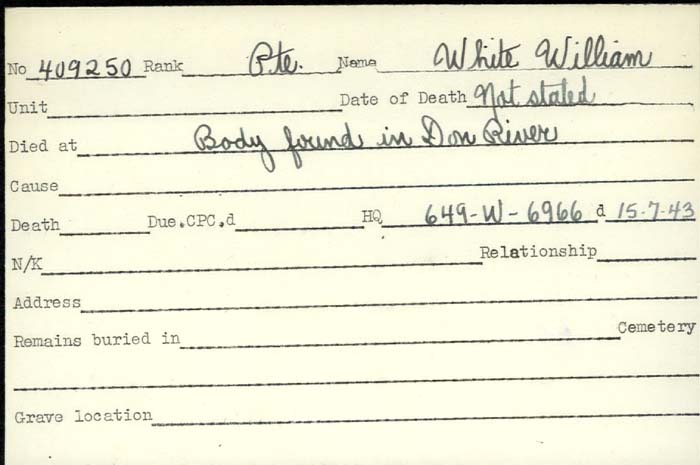 No 409250 Rank Pte. Name White William
Unit Date of Death Not stated
Died at Body found in Don River
Cause
Death Due.CPC.d HQ 649-W-6966 d 15-7-43
N/K Relationship
Address
Remains buried in Cemetery
Grave location